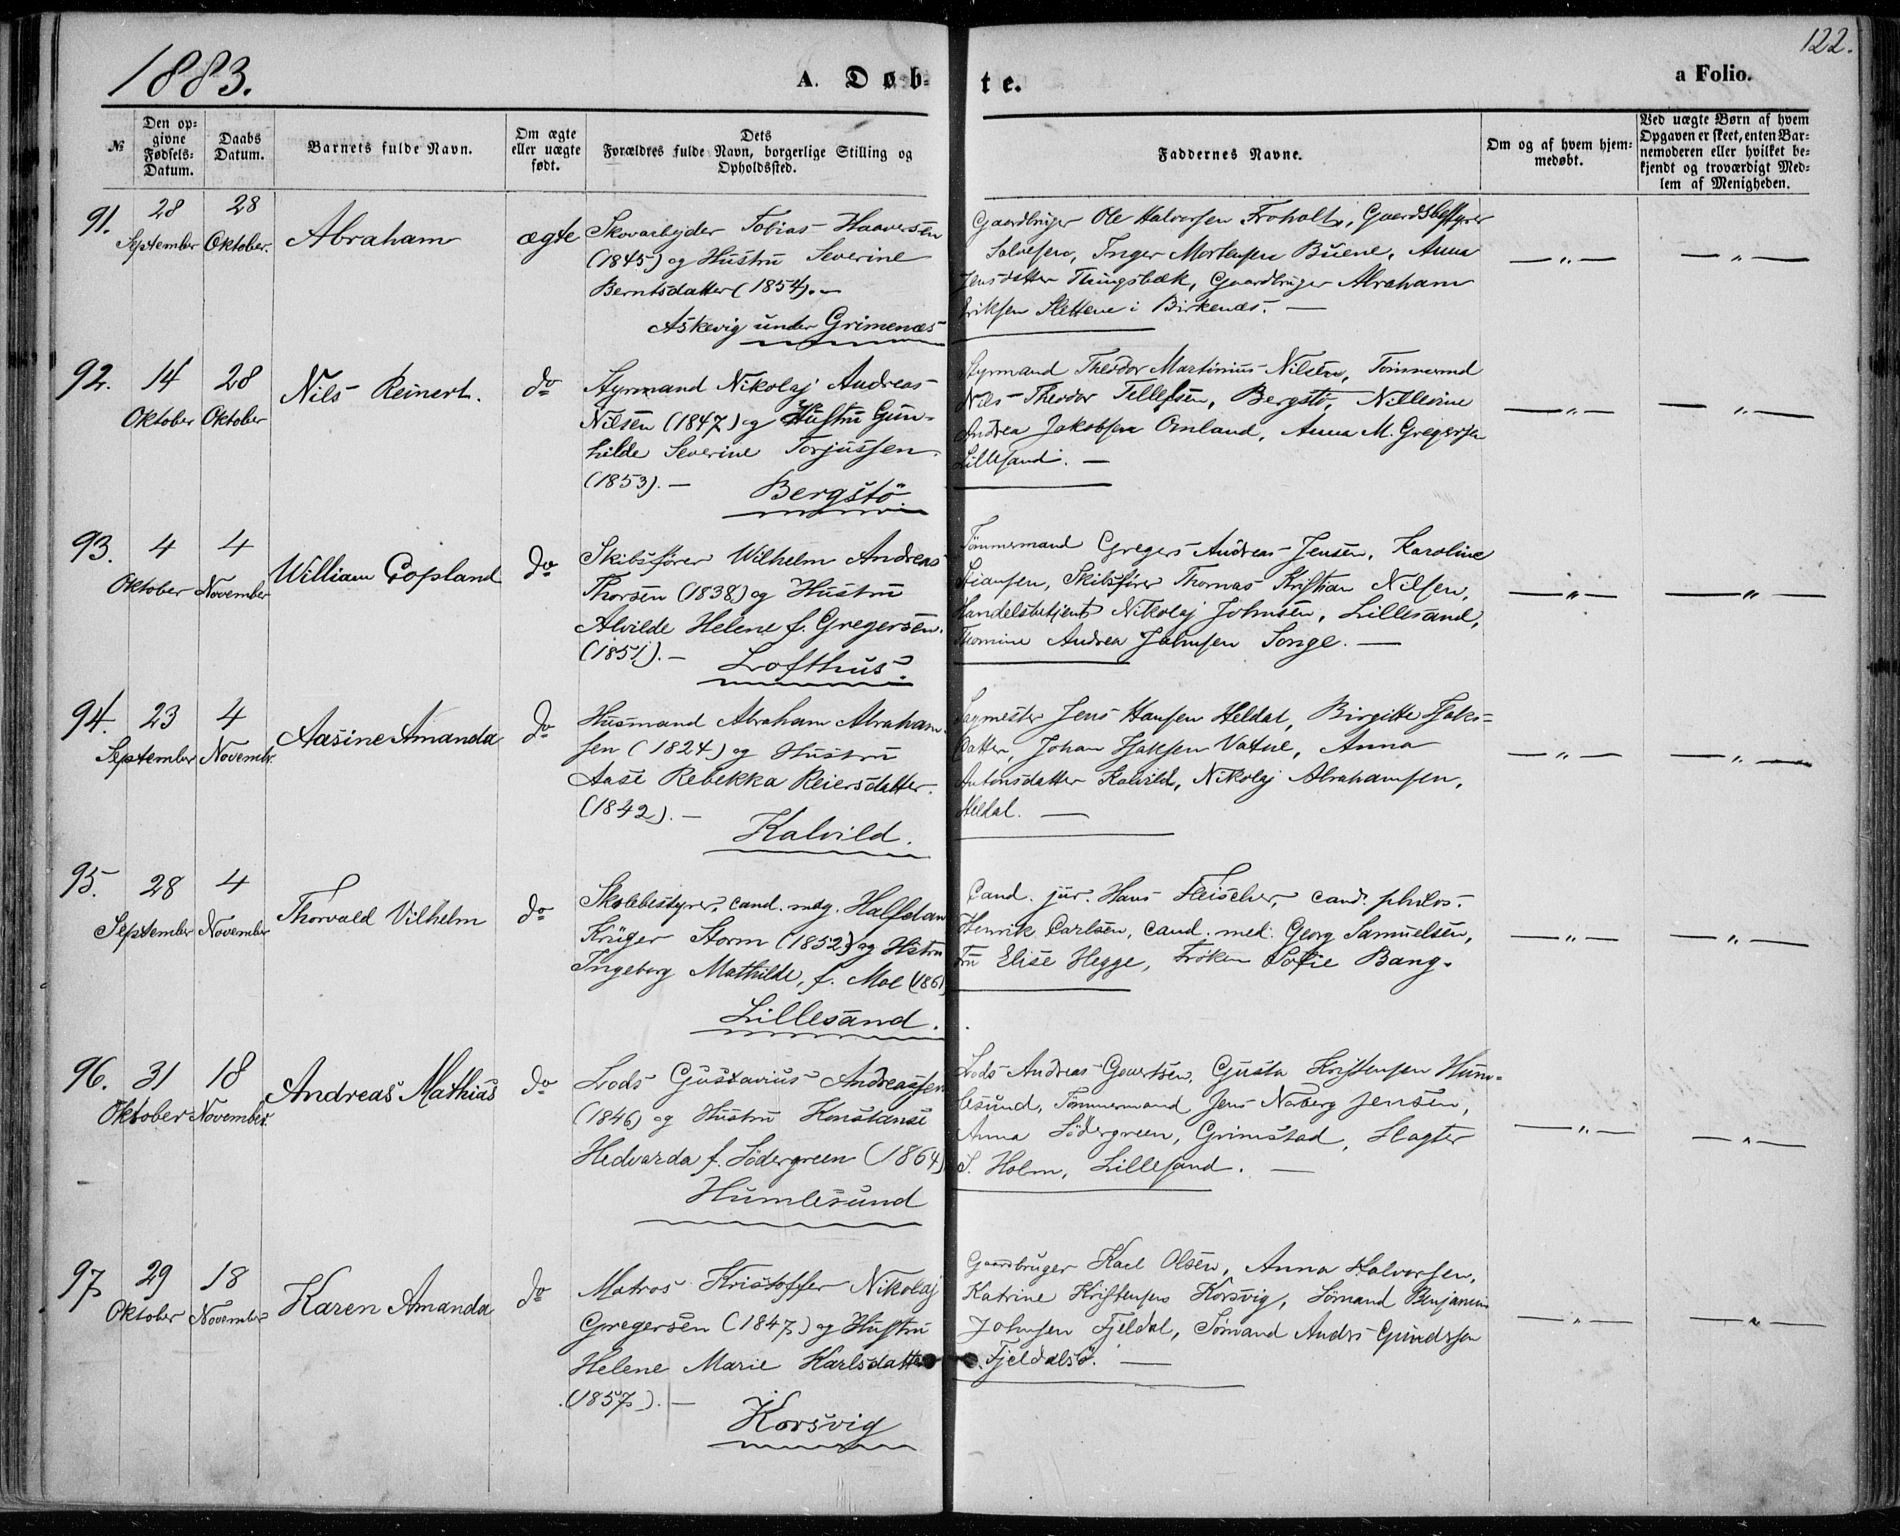 1883.
A. Døb-
te.
122.
a Folio.
№
Den op-
givne
Fødsels-
Datum.
Daabs
Datum.
Barnets fulde Navn.
Om ægte
eller uægte
født.
Dets
Forældres fulde Navn, borgerlige Stilling og
Opholdssted.
Faddernes Navne.
Om og af hvem hjem-
medøbt.
Ved uægte Børn af hvem
Opgaven er skeet, enten Bar-
nemoderen eller hvilket be-
kjendt og troværdigt Med-
lem af Menigheden.
91.
28
September
28
Oktober.
Abraham
ægte
Skovarbejder Tobias Haaversen
(1845) og Hustru Severine
Berntsdatter (1854). —
Askevig under Grimenæs
Gaardbruger Ole Halvorsen Froholt, Gaardsbestyrer
Salvesen, Inger Mortensen Buene, Anna
Jensdatter Tingsbæk, Gaardbruger Abraham
Eriksen Slettene i Birkenæs. —
— " —
— " —
92.
14
Oktober
28
Oktober
Nils Reinert.
do
Styrmand Nikolaj Andreas
Nilsen (1847) og Hustru Gun-
hilde Severine Torjussen
(1853). —
Bergstø
Styrmand Theodor Martinius Nilsen, Tømmermd
Nils Theodor Tellefsen, Bergstø, Nilleoine
Andrea Jakobsen Omland, Anna M. Gregersen
Lillesand. —
— " —
— " —
93.
4
Oktober
4
November
William Copland
do
Skibsfører Wilhelm Andreas
Thorsen (1838) og Hustru
Alvilde Helene f. Gregersen.
(1851). —
Lofthus.
Tømmermand Gregers Andreas Jensen, Karoline
Stiansen, Skibsfører Thomas Kristian Nilsen,
Handelsbetjent Nikolaj Johnsen, Lillesand,
Thomine Andrea Johnsen Songe. —
— " —
— " —
94.
23
September
4
Novembr.
Aasine Amanda
do
Husmand Abraham Abraham-
sen (1824) og Hustru
Aase Rebekka Reiersdatter.
(1842). —
Kalvild.
Sagmester Jens Hansen Heldal, Birgitte Isaks-
datter, Johan Isaksen Vatne, Anna
Antonsdatter Kalvild, Nikolaj Abrahamsen,
Heldal. —
— " —
— " —
95.
28
September
4
November
Thorvald Vilhelm
do
Skolebestyrer, cand. mag. Halfdan
Krüger Storm (1852) og Hstru
Ingeborg Mathilde, f. Moe (1861)
Lillesand.
Cand. jur. Hans Fleischer, cand. philos.
Henrik Carlsen, cand. med. Georg Samuelsen,
Fru Elise Hegge, Frøken Sofie Bang.
— " —
— " —
96.
31
Oktober
18
November.
Andreas Mathias
do
Lods Gustavius Andreassen
(1846) og Hustru Konstanse
Hedvarda f. Södergreen (1864)
Humlesund
Lods Andreas Govertsen, Gusta Kristensen Hum-
lesund, Tømmermand Jens Naberg Jensen,
Anna Södergreen, Grimstad, Slagter
S. Holm, Lillesand. —
— " —
— " —
97
29
Oktober
18
November
Karen Amanda
do
Matros Kristoffer Nikolaj
Gregersen (1847) og Hustru
Helene Marie Karlsdatter
(1857). —
Korsvig
Gaardbruger Karl Olsen, Anna Halvorsen,
Katrine Kristensen Korsvig, Sømand Benjamin
Johnsen Fjeldal, Sømand Anders Gundersen
Fjeldalsø. —
— " —
— " —